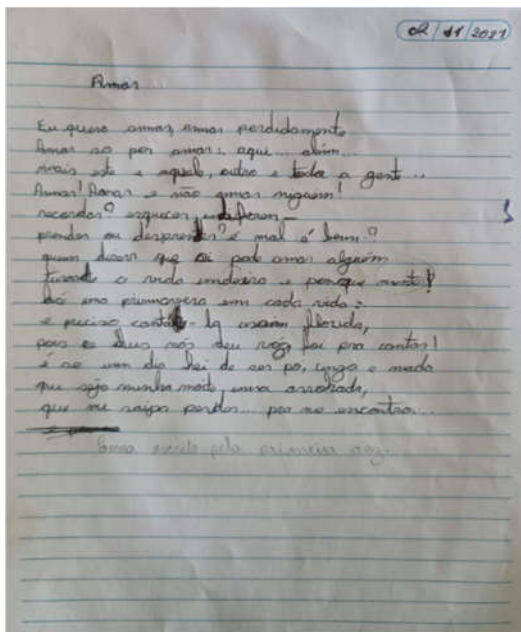 02/11/2021
Amar
Eu quero amar, amar perdidamente
Amar so por amar: aqui... além...
mais este e aquele, outro e toda a gent...
Amar! Amar e não amar niguem!
recordar? esquecer, indiferen-
prender ou desprender? é mal é bem?
quem disser que si pod amar alguém
a vida enteira e porque
há uma primavera em cada vida:
é preciso canta-la assim florida,
pois se deus nós deu voz, foi pra cantar!
é se um dia hei de ser po, e nada
que seja minha noite uma
que me saiba perder... pra me encontra...
pela primeira vez.